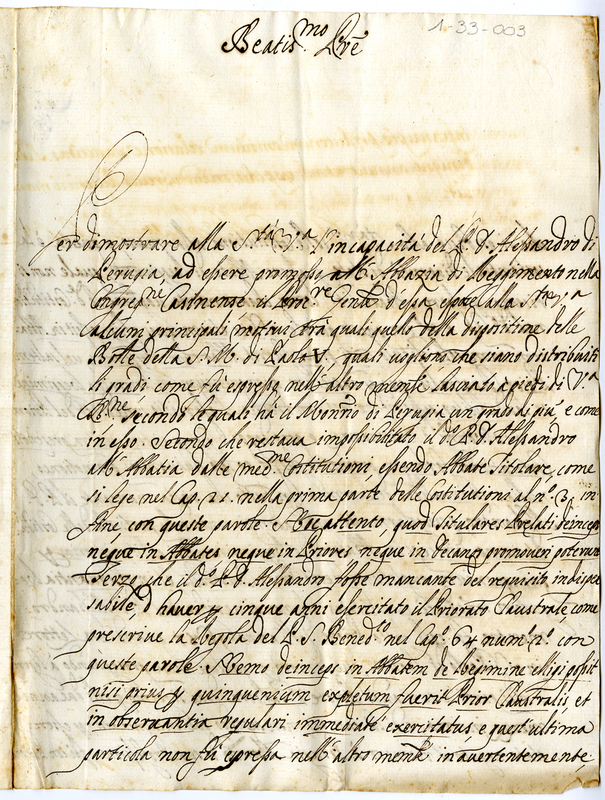 1-33-003
Beatis.mo Pre
Per dimostrare alla S.tà V.a l'incapacità del P. D. Alessandro di
Perugia ad essere promosso all'Abbazia di Reggimento nella
Congreg.ne Casinense il Proc.re Gen.le d'essa espose alla S.tà V.a
alcuni principali motivi tra quali quello della dispositione delle
Bolle della S. M. di Paolo V. quali vogliono che siano distribuiti
li gradi come fù espresso nell'altro mem.le lasciato a piedi di V.a
B.ne secondo le quali hà il Mon.ro di Perugia un grado di più e come
in esso. Secondo che restava impossibilitato il d.o P. D. Alessandro
all'Abbatia dalle med.me Costitutioni essendo Abbate Titolare come
si lege nel Cap. 21. nella prima parte delle Costitutioni al n.o 3. in
fine con queste parole. Hoc attento, quod Titulares Prelati deinceps
neque in Abbates neque in Priores neque in Decanos promoveri poterunt
Terzo che il d.o P. D. Alessandro fosse mancante del requisito indispe
sabile d'haver p cinque anni esercitato il Priorato Claustrale come
prescrive la Regola del P. S. Bened.to nel Cap.o 64 num.o 2.o con
queste parole. Nemo deinceps in Abbatem de Regimine eligi possit
nisi prius p quinquenium expletum fuerit Prior Claustralis, et
in observantia regulari immediate exercitatus e quest'ultima
particola non fù espressa nell'altro mem.le inavertentemente